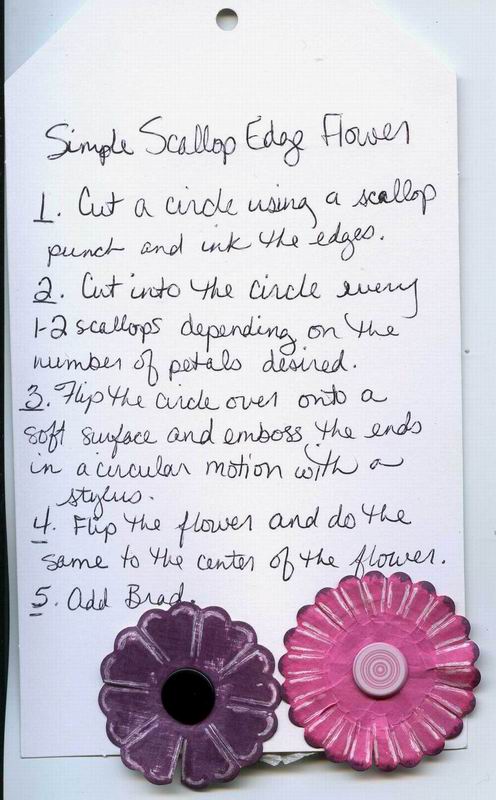 Simple Scallop Edge Flower
1. Cut a circle using a scallop
punch and ink the edges.
2. Cut into the circle every
1-2 scallops depending on the
number of petals desired.
3. Flip the circle over onto a
soft surface and emboss the ends
in a circular motion with a
stylus.
4. Flip the flower and do the
same to the center of the flower.
5. Add Brad.